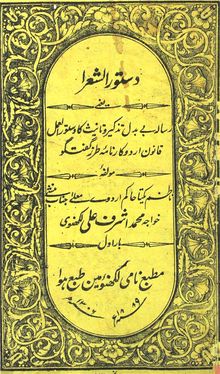 دستور الشعرا
رسالہ بے بدل تذکیر و تانیث کا دستور العمل
قانون اردو کارنامہ طرز گفتگو
مولفہ
ناظم یکتا حاکم اردوے معلا جناب منشی
خواجہ محمد اشرف علی لکھنوی
بار اول
مطبع نامی لکھنؤ مین طبع ہوا